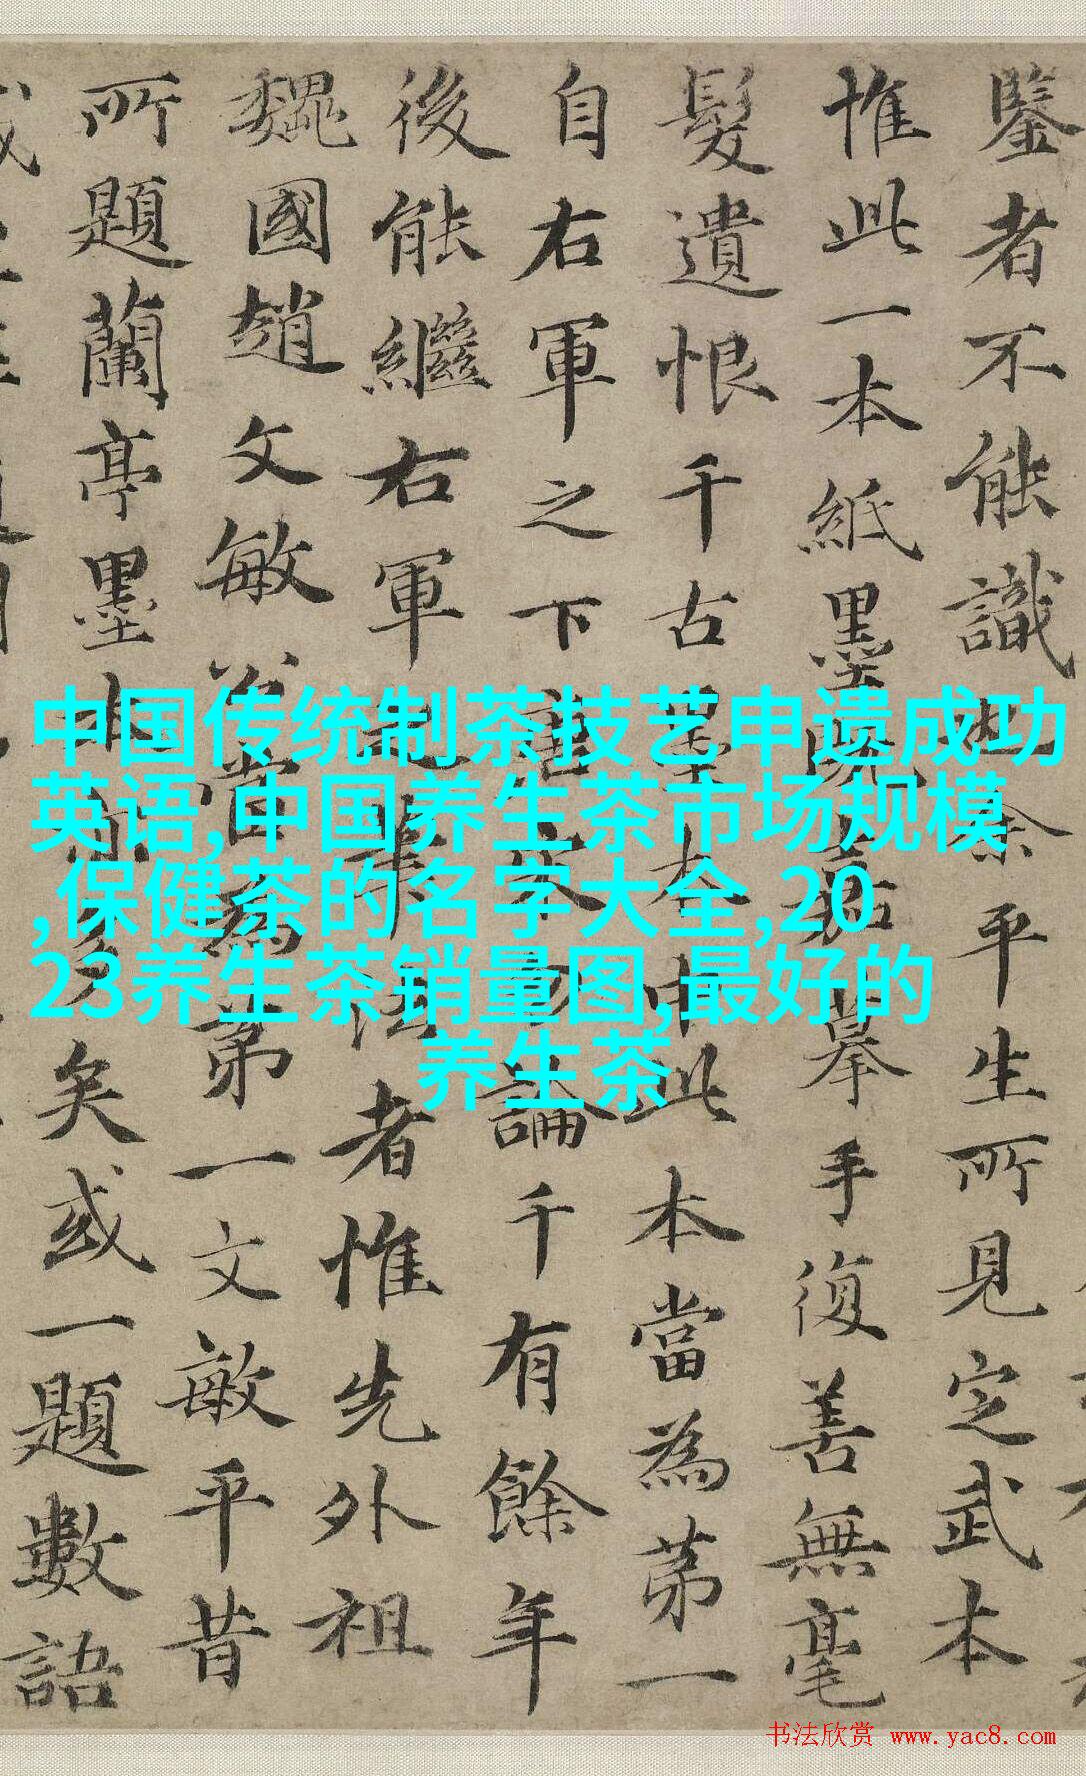 鑒者不能識也余平生所見定武本
惟此一本紙墨既嘉摹手復善無毫
髮遺恨千古墨本中此本當為苐一
自右軍之下論千有餘年
後能繼右軍筆法者惟先外祖
魏國趙文敏公當為苐一文敏平昔
所題蘭亭墨本多矣或一題數語
中国传统制茶技艺申遗成功
英语,中国养生茶市场规模
,保健茶的名字大全,20
23养生茶销量图,最好的
养生茶
书法欣赏 www.yac8.com